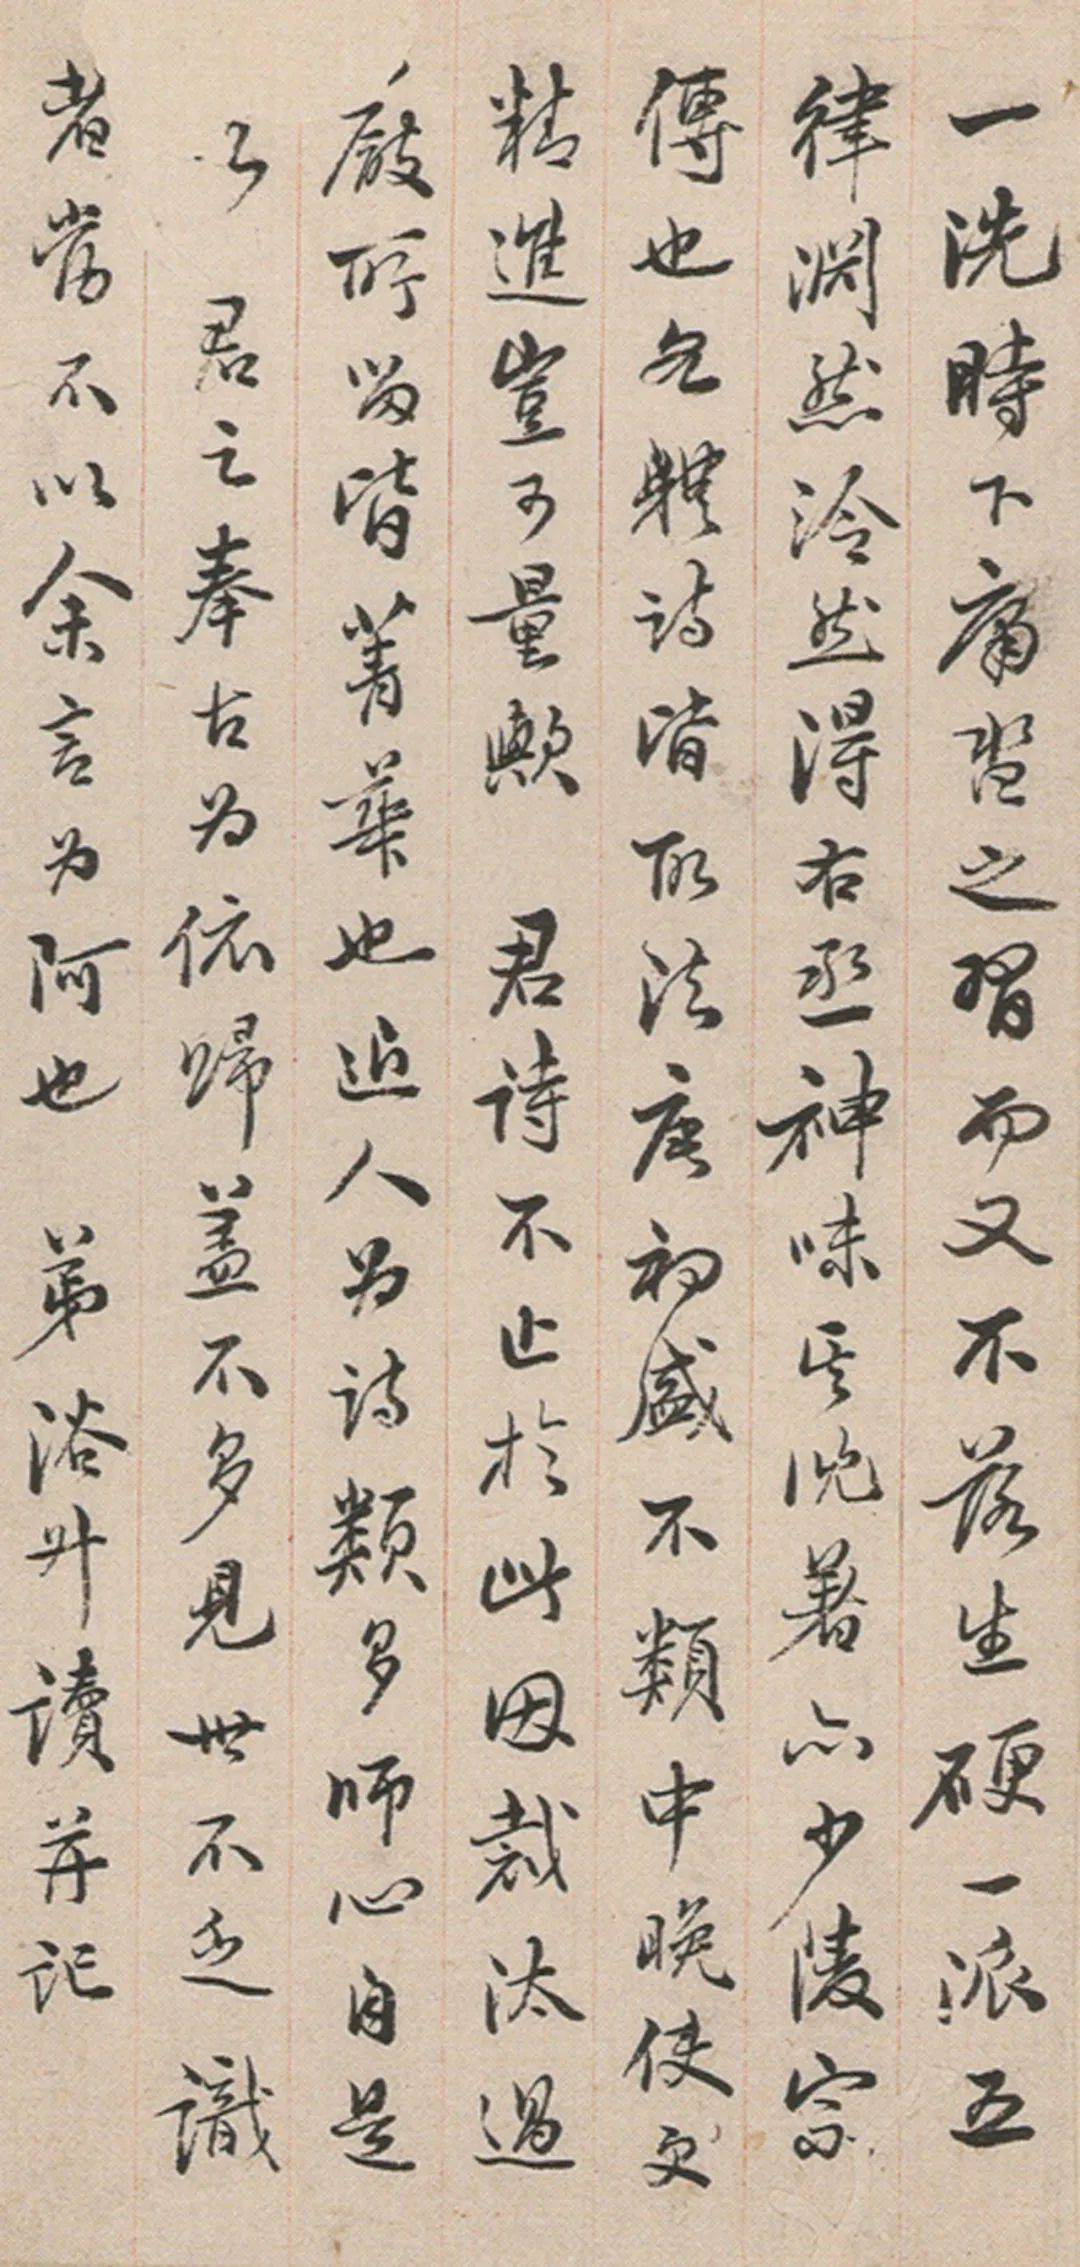 一洗時下庸盌之習而又不落生硬一派五
律淵然泠然得右丞神味其沈著亦少陵宗
傳也各體詩皆取法唐初盛不類中晚使更
精進豈可量歟 君詩不止於此因裁汰過
嚴所留皆菁華也近人為詩類多師心自是
如 君之奉古為依歸蓋不多見世不乏識
者當不以余言為阿也 弟浴升讀并記